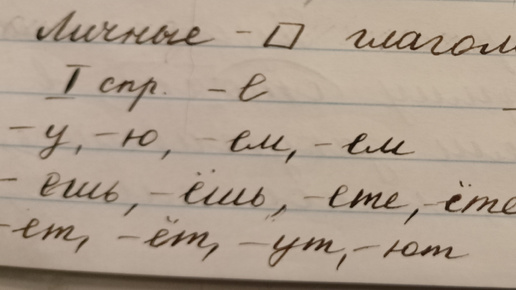 Личные - глагол
I спр. -е
-у, -ю, -ем, -ем
-ешь, -ёшь, -ете, -ёте
-ет, -ёт, -ут, -ют